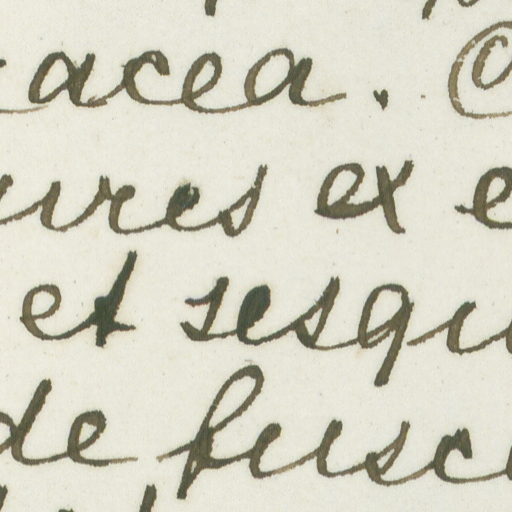 acea.
ures ex e
et sesqu
de fusc